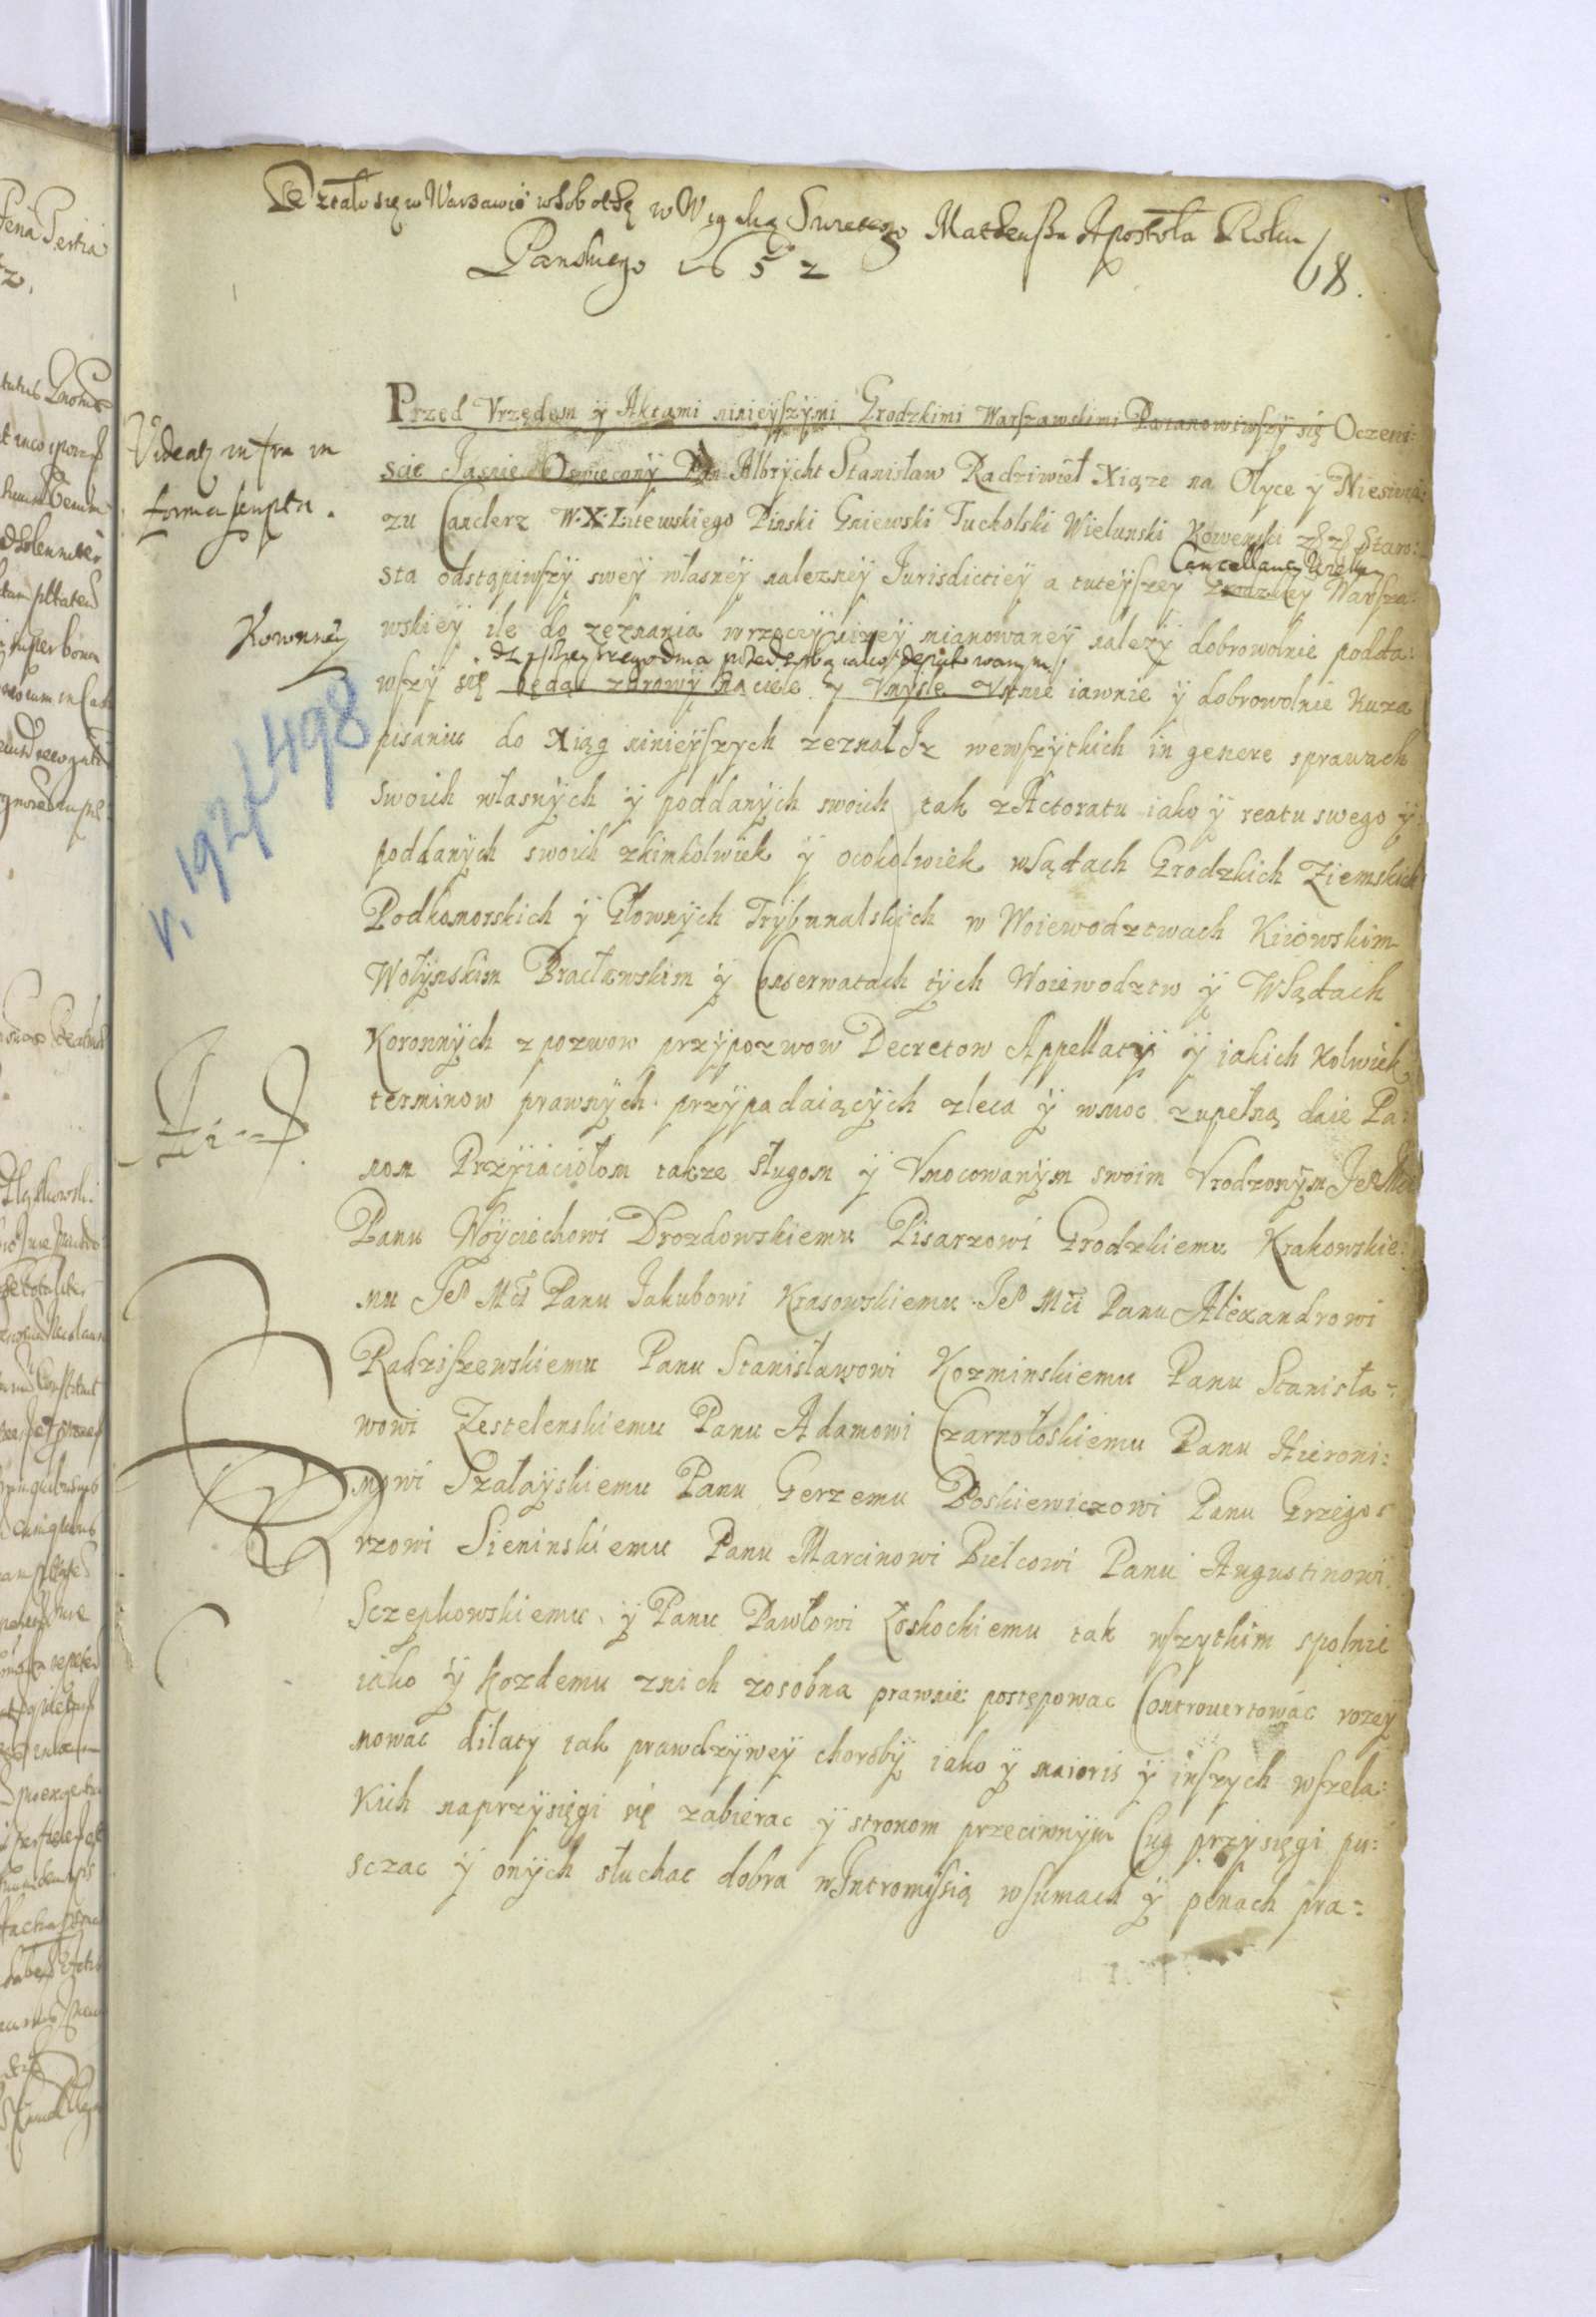 Działo się w Warszawie w Sobotkę w Wigilią Swietego Matheusza Apostoła Roku
Panskiego 1652
68.
Przed Vrzędem ÿ Aktami ninieÿszÿmi Grodzkimi Warszawskimi Stanowiwszÿ się Oczewi:
Videatz infra in
forma scripta.
scie Jasnie Oswieconÿ Pan Albrÿcht Stanisław Radziwieł Xiąze na Olyce ÿ Nieswie:
zu Canclerz W.X.Litewskiego Pinski Gniewski Tucholski Wielunski Kowenski Staro:
Cancellariey
sta odstąpiwszÿ sweÿ własneÿ należneÿ Jurisdictieÿ a tuteÿszeÿ Grodzkieÿ Warsza:
wskieÿ ile do zeznania wrzeczÿ niżeÿ mianowaneÿ należÿ dobrowolnie podda:
wszÿ się będąc zdrowÿ na ciele ÿ Vmysle Vstnie iawnie ÿ dobrowolnie kuza
pisaniu do Xiąg ninieÿszych zeznał Jz wewszÿtkich in genere sprawach
v. 192/498
swoich własnÿch ÿ poddanÿch swoich tak z Actoratu iako ÿ reatu swego ÿ
poddanÿch swoich zkimkolwiek ÿ ocokolwiek wSądach Grodzkich Ziemskich
Podkomorskich ÿ Głownÿch Trÿbunalskich w Woiewodztwach Kiiowskim
Wołÿnskim Bracławskim ÿ Conserwatach tÿch Woiewodztw ÿ WSądach
Koronnÿch z pozwow przÿpozwow Decretow Appellatÿÿ ÿ iakich kolwiek
terminow prawnÿch przÿpadaiącÿch zleca ÿ wmoc zupełną daie Pa:
nom Przÿiaciołom takze sługom ÿ Vmocowanÿm swoim Vrodzonÿm Je° Mci
Panu Woÿciechowi Drozdowskiemu Pisarzowi Grodzkiemu Krakowskie:
mu Je° Mci Panu Jakubowi Krasowskiemu Je° Mci Panu Alexandrowi
Radziszewskiemu Panu Stanisławowi Kozminskiemu Panu Stanisła:
wowi Zestelenskiemu Panu Adamowi Czarnołoskiemu Panu Hieroni:
mowi Szałaÿskiemu Panu Gerzemu Boskiewiczowi Panu Grzego:
rzowi Sieninskiemu Panu Marcinowi Bielcowi Panu Augustinowi
Sczepkowskiemu ÿ Panu Pawłowi Łoskockiemu tak wszytkim spolnie
iako ÿ kozdemu znich zosobna prawnie postępowac Controuertowac rozeÿ
mowac dilaty tak prawdzÿweÿ chorobÿ iako ÿ maioris ÿ inszych wszela:
kich naprzÿsięgi się zabierac ÿ stronom przeciwnÿm Cug przysięgi pu:
sczac ÿ onÿch słuchac dobra wJntromÿsią wsumach ÿ penach pra: